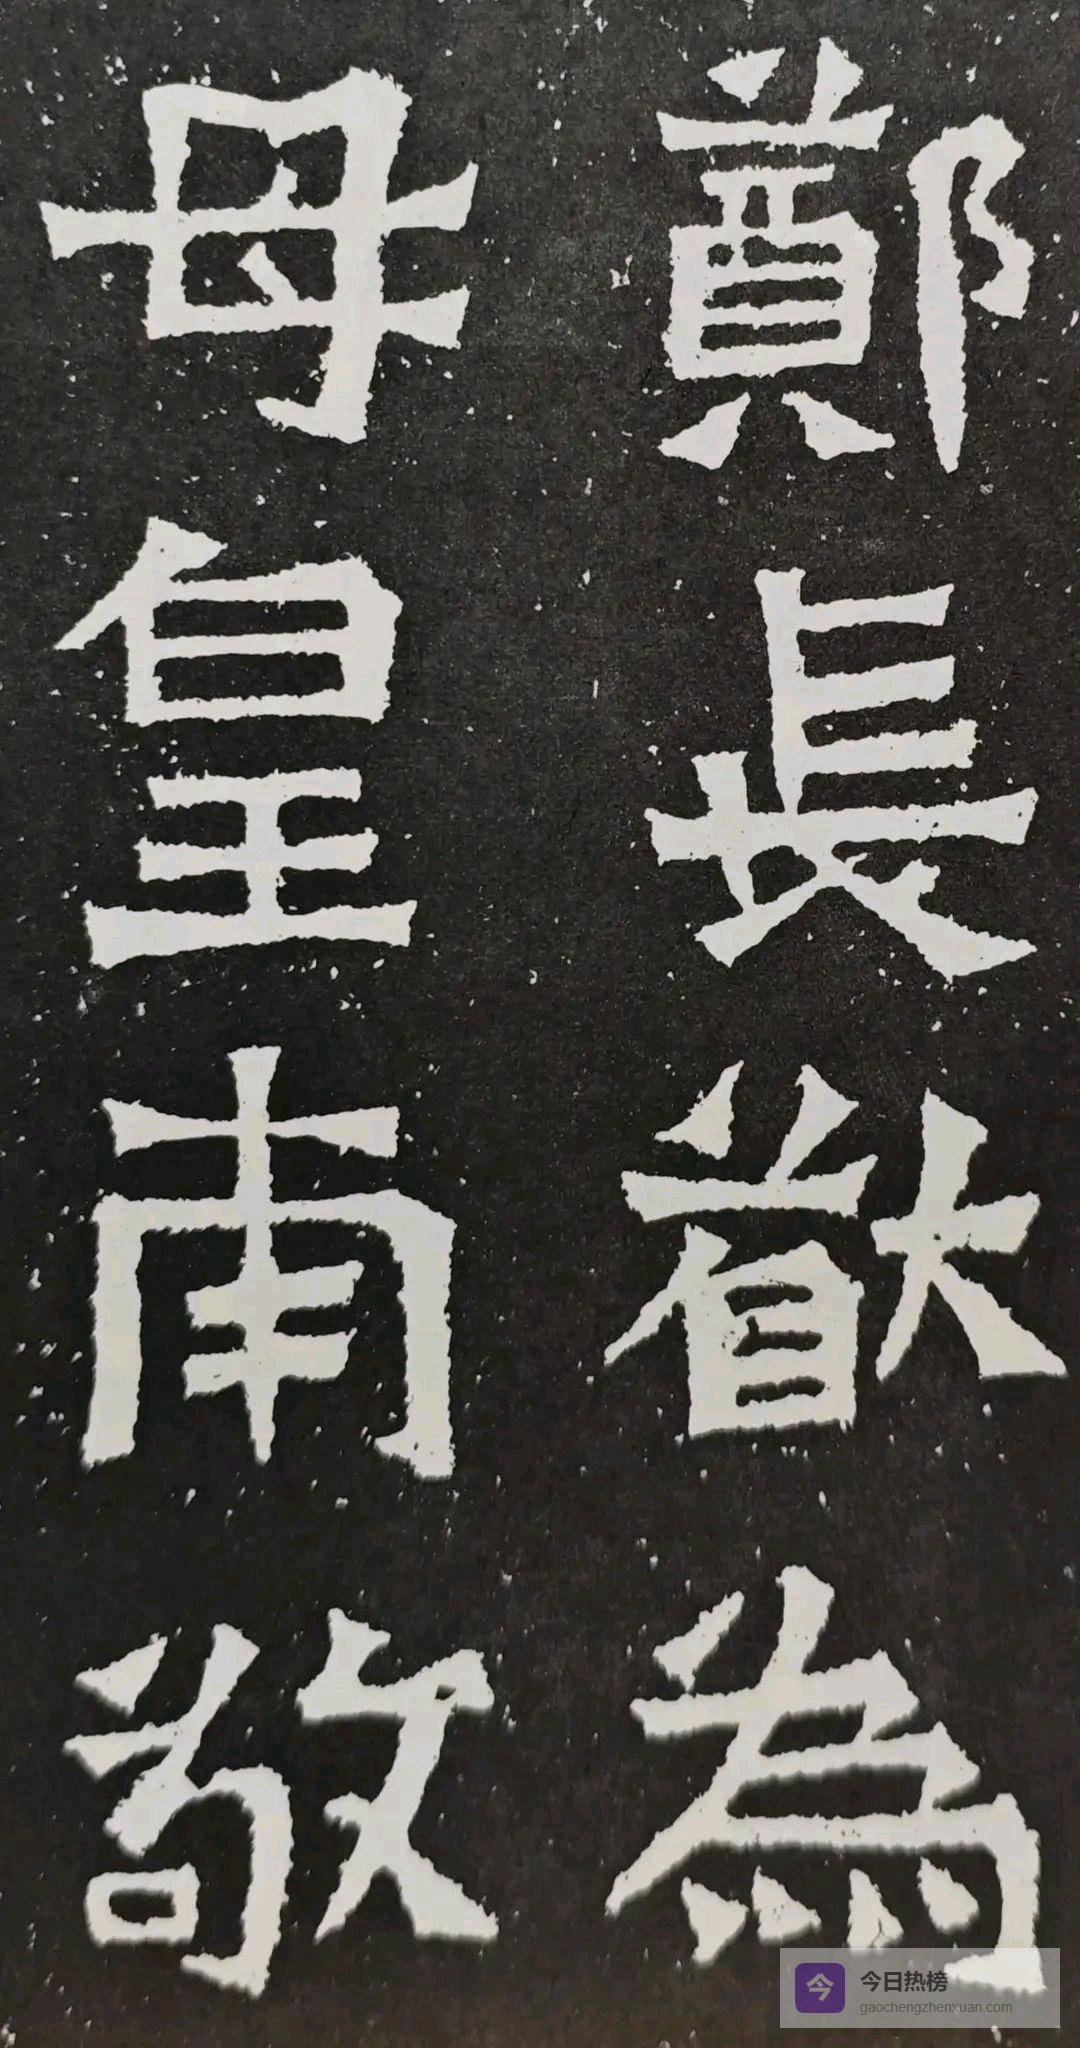 鄭長猷為
母皇甫敬
今
今日热榜
gaochengzhenxuan.com